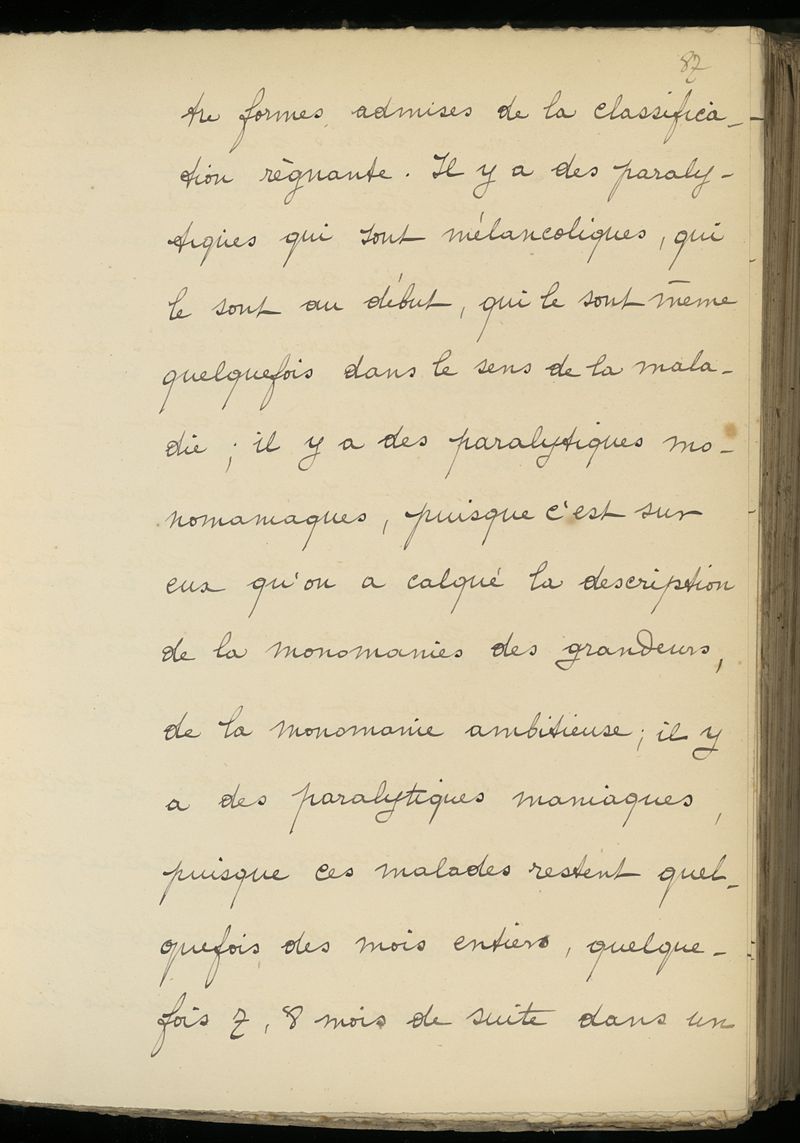 87
tre formes admises de la classifica-
tion règnante. Il y a des paraly-
tiques qui sont mélancoliques, qui
le sont au début, qui le sont même
quelquefois dans le sens de la mala-
die ; il y a des paralytiques mo-
nomaniaques, puisque c'est sur
eux qu'on a calqué la description
de la monomanies des grandeurs,
de la monomanie ambitieuse ; il y
a des paralytiques maniaques,
puisque ces malades restent quel-
quefois des mois entiers, quelque-
fois 7, 8 mois de suite dans un